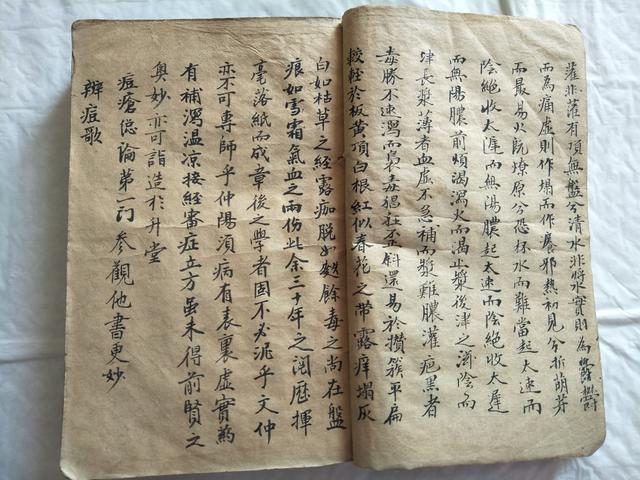 灌非灌有頂無盤兮清水非將水實則為鬱鬱
而為痛虛則作塌而作癢邪熱初見兮折萌芽
而最易火既燎原兮恐杯水而難當起太速而
陰絕收太遲而無陽膿起太速而陰絕收太遲
而無陽膿前煩渴瀉火而渴止漿後津之滋陰而
津長漿薄者血虛不急補而漿難膿灌疤黑者
毒勝不速瀉而裊毒遏在至斜還易於攢簇平扁
較輕於板黃頂白根紅似春花之帶露痒塌灰
白如枯草之經露痂脫如麩餘毒之尚在盤
痕如雪霜氣血之兩份此余三十年之閱歷揮
毫落紙而成章後之學者固不必泥乎文仲
亦不可專師乎仲陽須病有表裏虛實藥
有補瀉溫凉按經審症立方虽未得前賢之
奥妙亦可詣造於升堂
痘瘡總論第一門 參觀他書更妙
辨痘歌